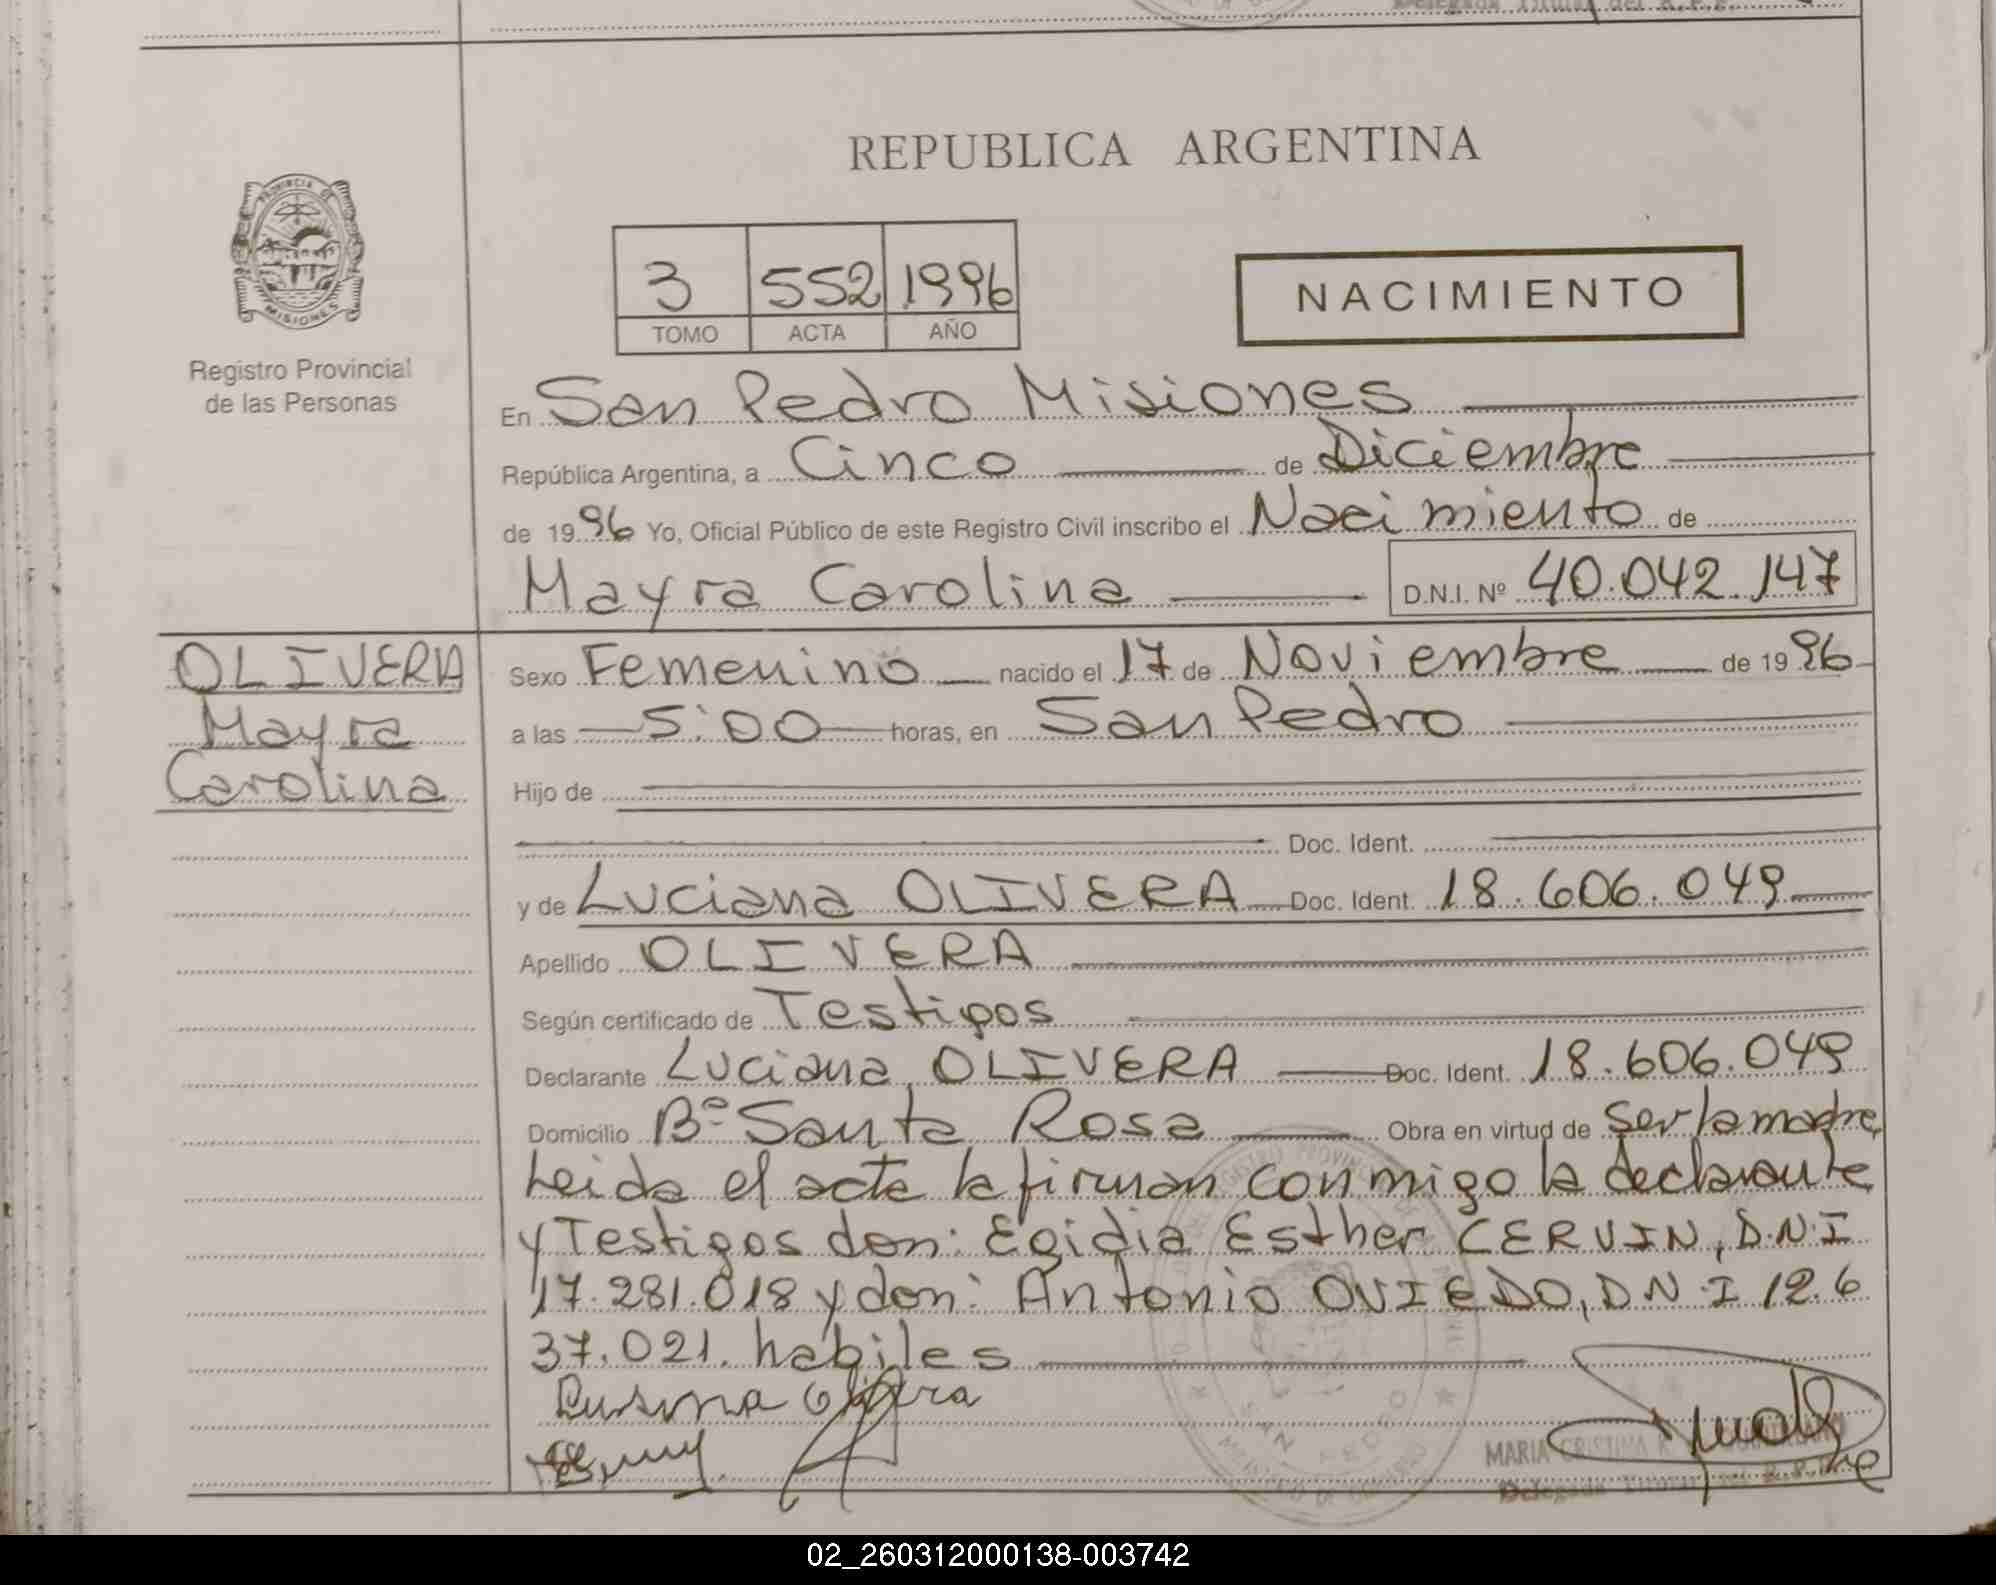 Delegada Titular del R.P.P.
REPUBLICA ARGENTINA
PROVINCIA DE
MISIONES
Registro Provincial
de las Personas
3 552 1996
TOMO ACTA AÑO
NACIMIENTO
En San Pedro Misiones
República Argentina, a Cinco de Diciembre
de 1996 Yo, Oficial Público de este Registro Civil inscribo el Nacimiento de
Mayra Carolina D.N.I. Nº 40.042.147
OLIVERA
Mayra
Carolina
Sexo Femenino nacido el 17 de Noviembre de 1996
a las 5:00 horas, en San Pedro
Hijo de
Doc. Ident.
y de Luciana OLIVERA Doc. Ident. 18.606.049
Apellido OLIVERA
Según certificado de Testigos
Declarante Luciana OLIVERA Doc. Ident. 18.606.049
Domicilio Bº Santa Rosa Obra en virtud de ser la madre
Leida el acta la firman conmigo la declarante
y Testigos don: Egidia Esther CERVIN, D.N.I
17.281.018 y don: Antonio OVIEDO, D.N.I 12.6
37.021. habiles
MARIA CRISTINA
Delegada Titular del R.P.P.
SAN PEDRO
02_260312000138-003742